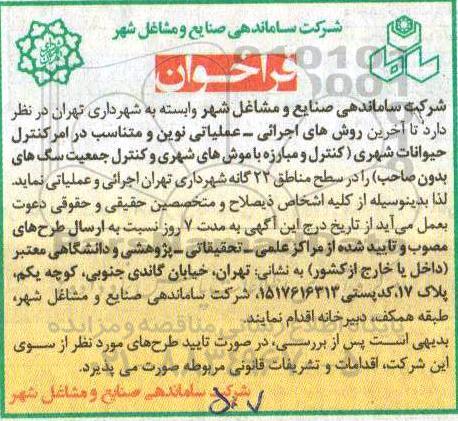 شرکت ساماندهی صنایع و مشاغل شهر
فراخوان
شرکت ساماندهی صنایع و مشاغل شهر وابسته به شهرداری تهران در نظر
دارد تا آخرین روش های اجرائی ـ عملیاتی نوین و متناسب در امر کنترل
حیوانات شهری ( کنترل و مبارزه با موش های شهری و کنترل جمعیت سگ های
بدون صاحب) را در سطح مناطق ۲۲ گانه شهرداری تهران اجرائی و عملیاتی نماید.
لذا بدینوسیله از کلیه اشخاص ذیصلاح و متخصصین حقیقی و حقوقی دعوت
بعمل می‌آید از تاریخ درج این آگهی به مدت ۷ روز نسبت به ارسال طرح‌های
مصوب و تایید شده از مراکز علمی ـ تحقیقاتی ـ پژوهشی و دانشگاهی معتبر
(داخل یا خارج از کشور) به نشانی: تهران، خیابان گاندی جنوبی، کوچه یکم،
پلاک ۱۷، کدپستی ۱۵۱۷۶۱۶۳۱۳، شرکت ساماندهی صنایع و مشاغل شهر،
طبقه همکف، دبیرخانه اقدام نمایند.
بدیهی است پس از بررسی، در صورت تایید طرح‌های مورد نظر از سوی
این شرکت، اقدامات و تشریفات قانونی مربوطه صورت می پذیرد.
شرکت ساماندهی صنایع و مشاغل شهر